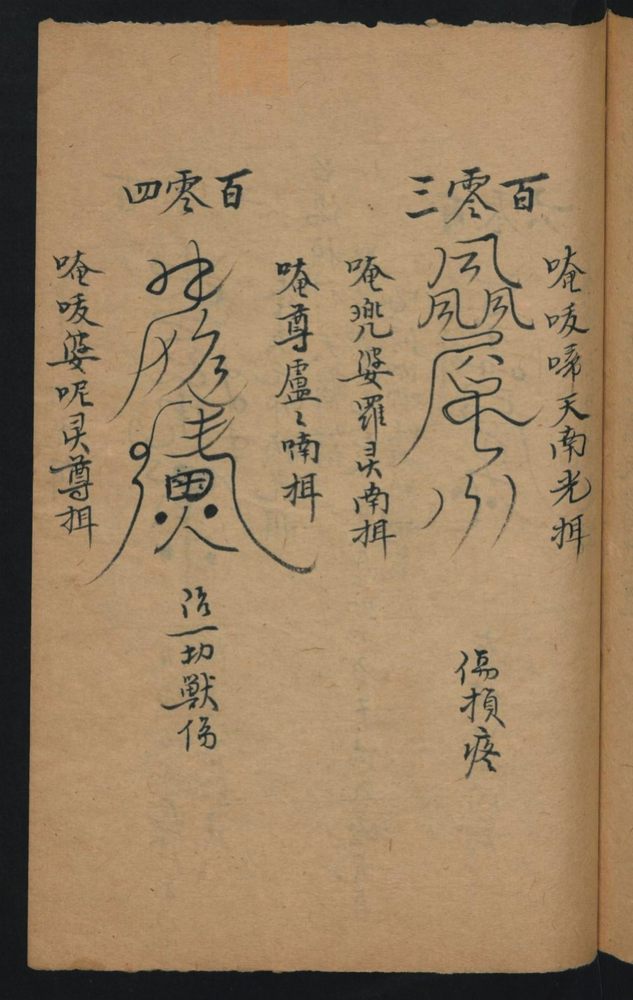 百零三
唵㖞啼天南光揖
唵兜婆羅灵南揖
傷損疼
百零四
唵尊盧〻喃揖
唵㖞婆呢灵尊揖
治一切獸傷